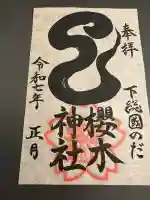 奉拝
下総國のだ
櫻木
神社
令和七年
正月